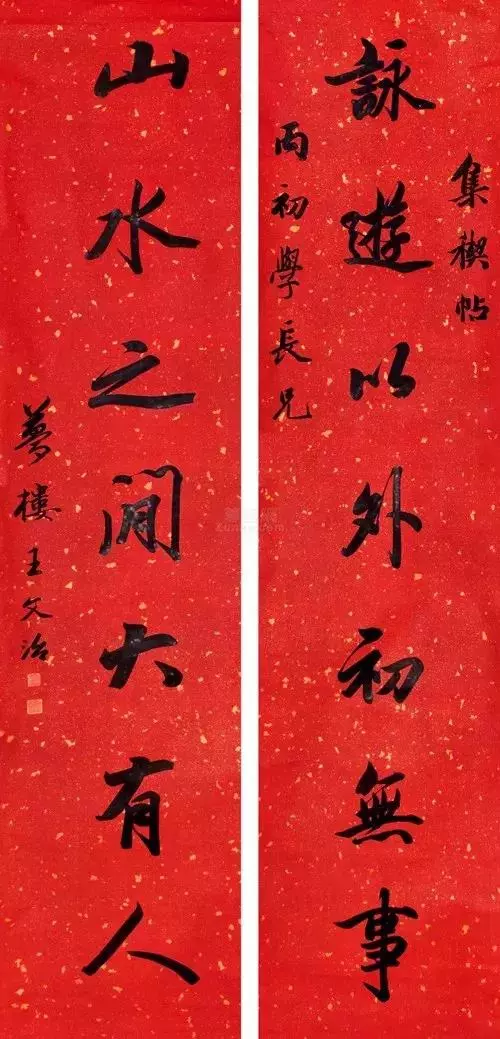 集禊帖
詠遊以外初無事
丙初學長兄
山水之間大有人
夢樓王文治